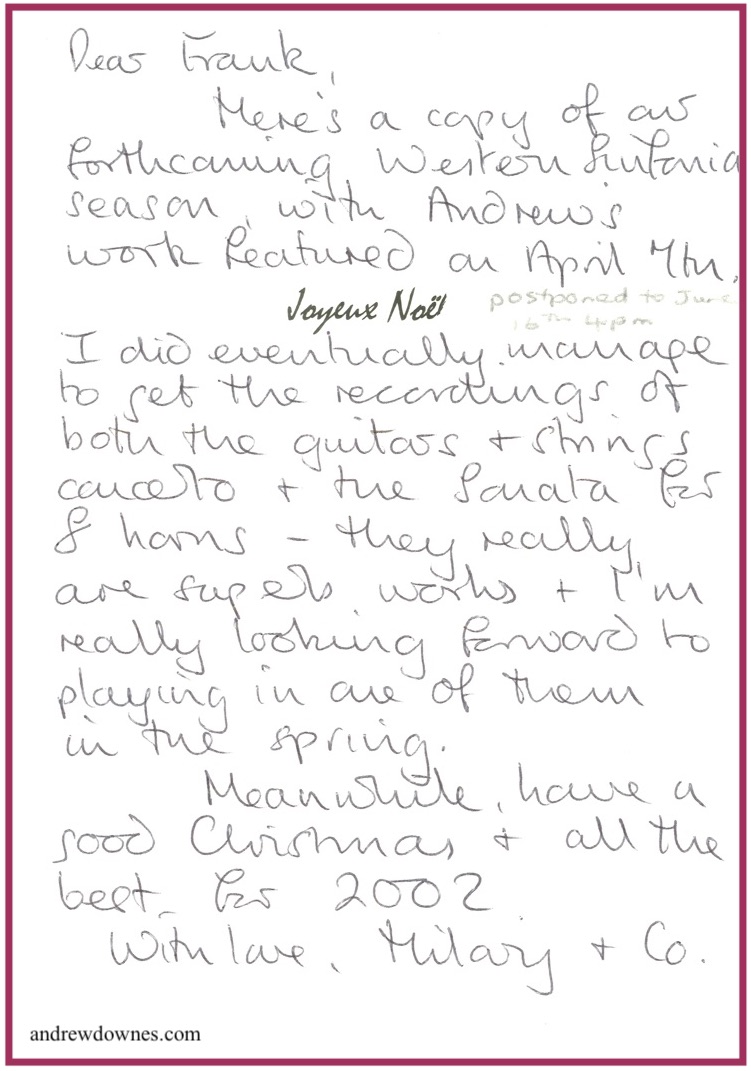 Dear Frank,
Here's a copy of our
forthcoming Western Sinfonia
season, with Andrew's
work featured on April 7th.
Joyeux Noël
postponed to June
16th 4pm
I did eventually manage
to get the recordings of
both the guitars + strings
concerto + the Sonata for
8 horns – they really
are superb works + I'm
really looking forward to
playing in one of them
in the spring.
Meanwhile, have a
good Christmas + all the
best for 2002
With love, Hilary + Co.
andrewdownes.com